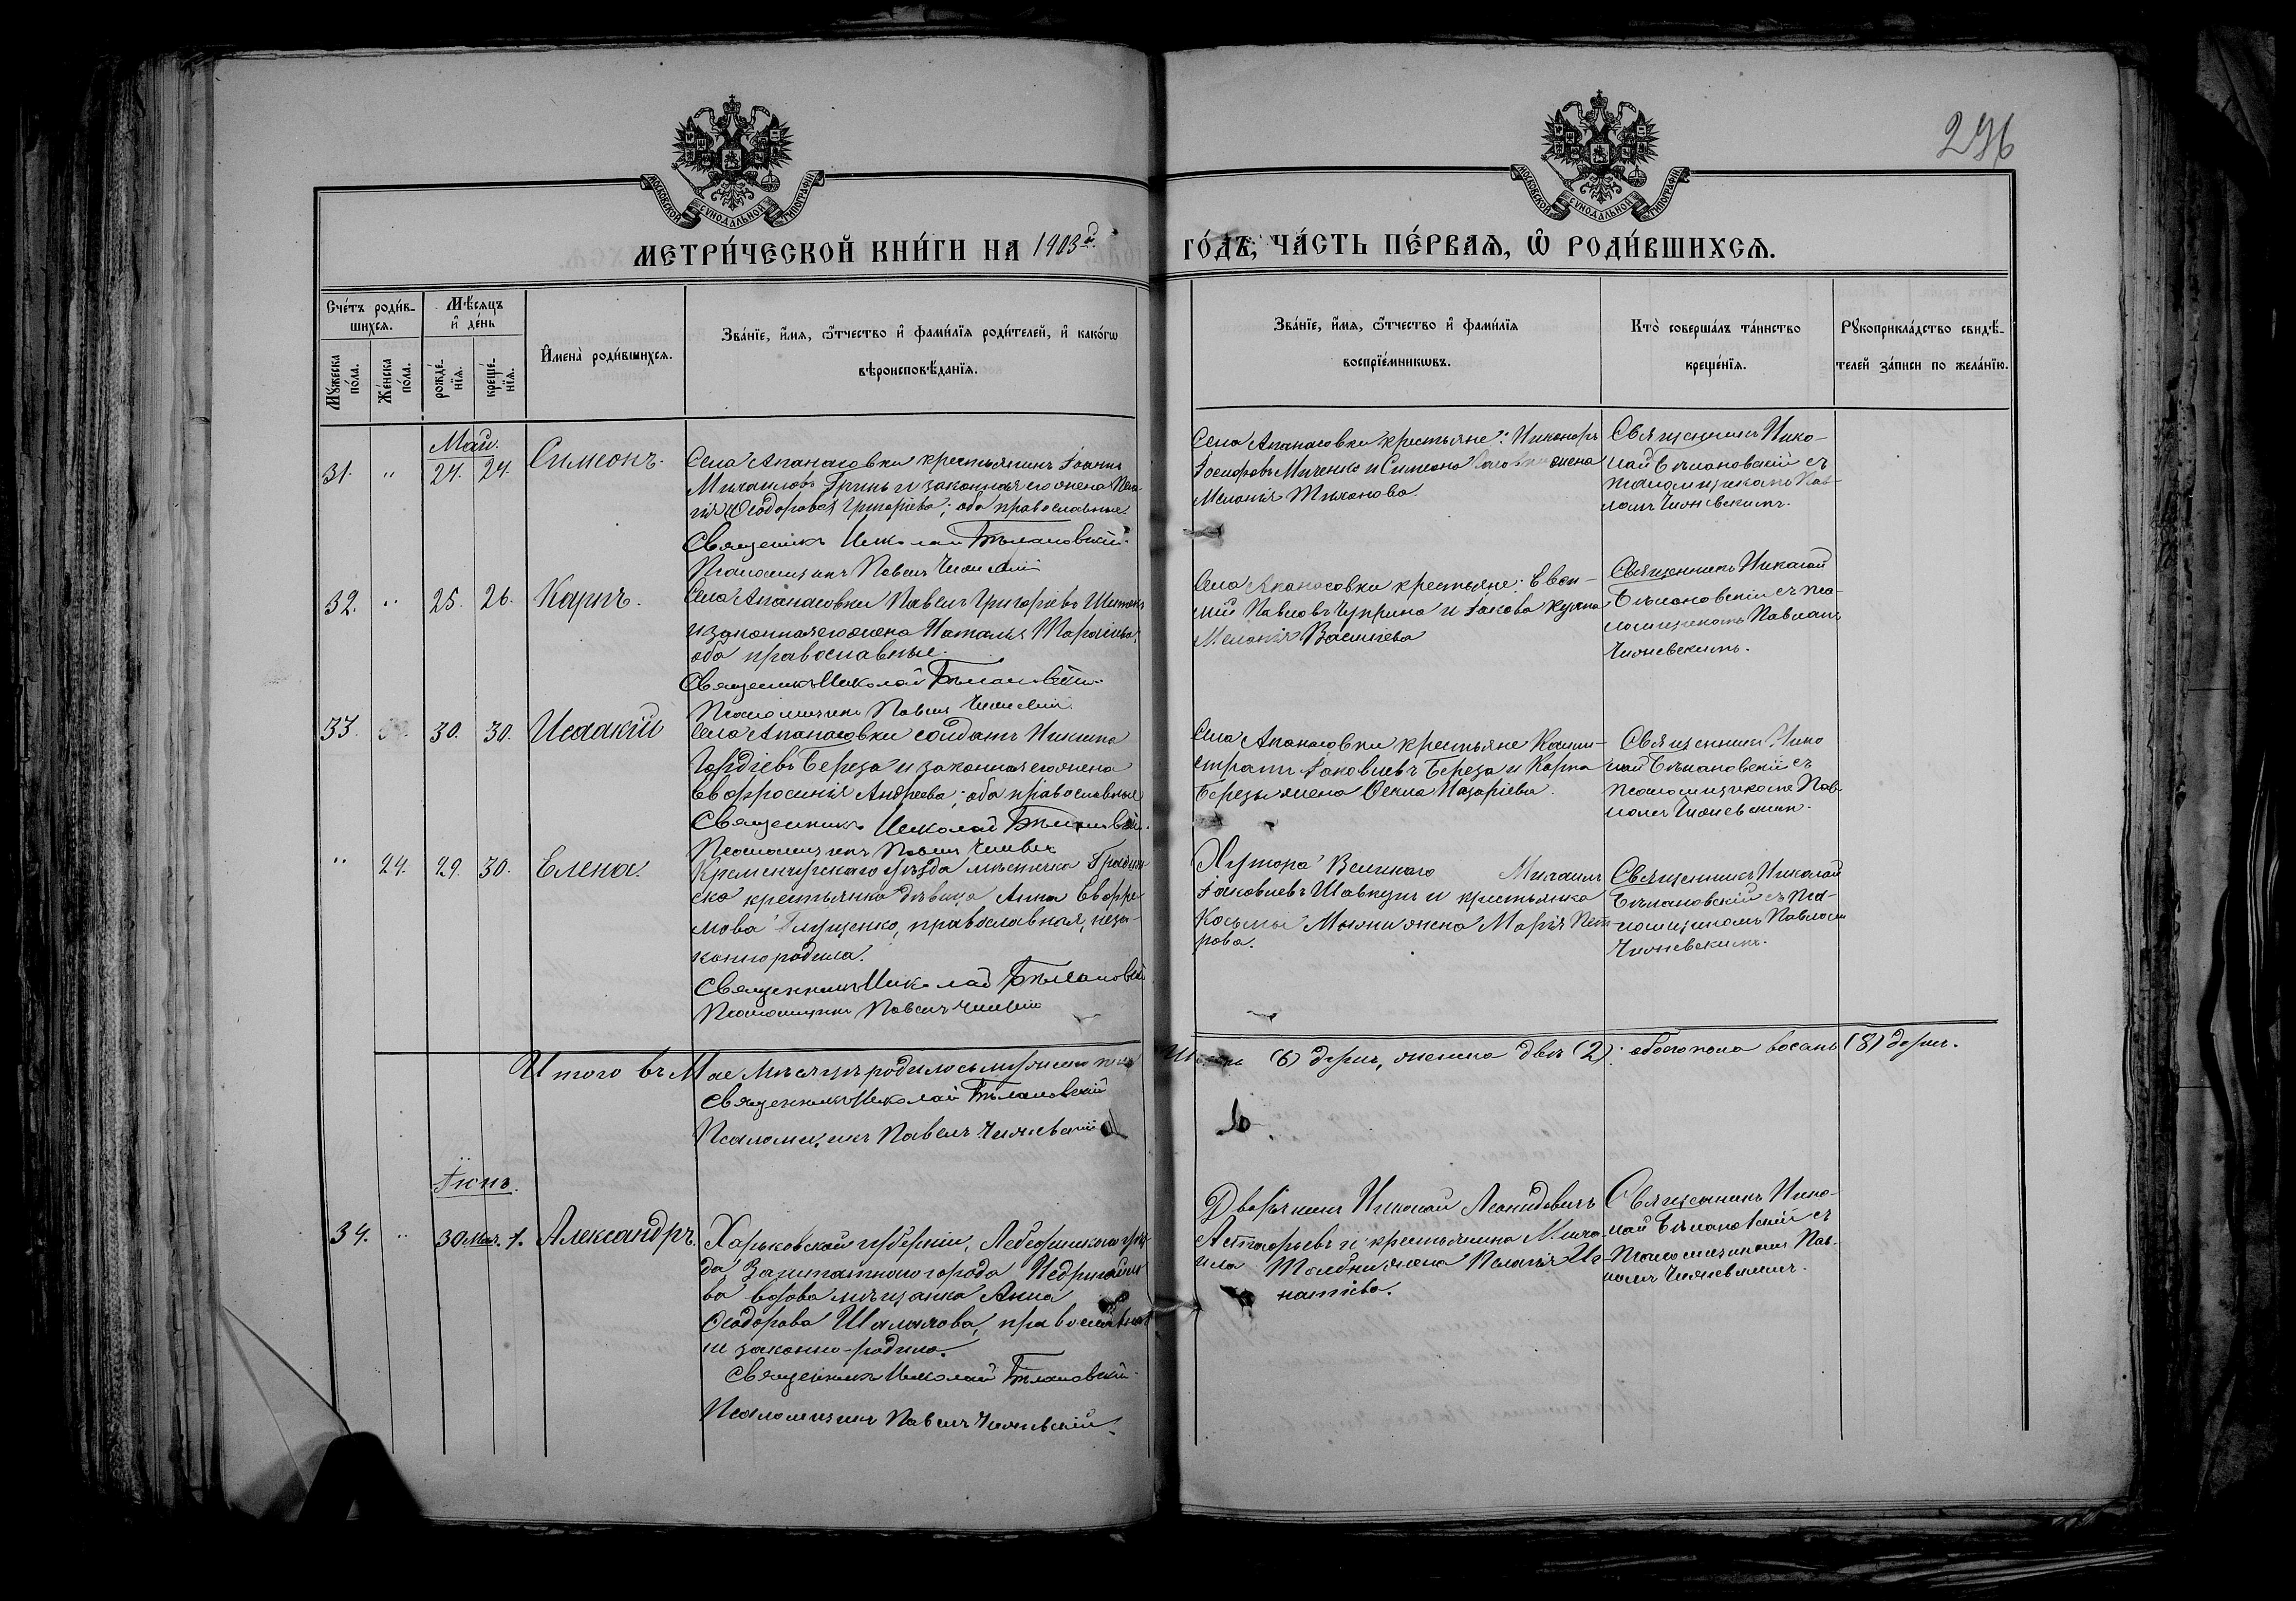 296
МОСКОВСКОЙ СУНОДАЛЬНОЙ ТИПОГРАФІИ
МОСКОВСКОЙ СУНОДАЛЬНОЙ ТИПОГРАФІИ
МЕТРИ́ЧЕСКОЙ КНИ́ГИ НА 1903 й
ГО́ДЪ, ЧА́СТЬ ПЕ́РВАѦ, Ѡ РОДИ́ВШИХСѦ.
Сче́тъ роди́в-
шихсѧ.
Мꙋ́жеска
по́ла.
Же́нска
по́ла.
Мѣ́сѧцъ
и҆ де́нь
рожде́-
нїѧ.
креще́-
нїѧ.
И҆мена̀ роди́вшихсѧ.
Зва́нїе, и҆́мѧ, ѻ҆́тчество и҆ фами́лїѧ роди́телей, и҆ како́гѡ
вѣроисповѣ́данїѧ.
Зва́нїе, и҆́мѧ, ѻ҆́тчество и҆ фами́лїѧ
воспрїе́мникѡвъ.
Кто̀ соверша́лъ та́инство
креще́нїѧ.
Рꙋкоприкла́дство свидѣ́-
телей за́писи по жела́нїю.
Май.
31. " 24. 24. Симеонъ.
Села Апанасовки крестьянинъ Іоаннъ
Михаиловъ Гринь и законная его жена
Ѳеодоровая Григоріева; оба православные
Священикъ Николай Бѣлановскій.
Псаломщикъ Павелъ
Села Апанасовки крестьяне: Никаноръ
Іосифовъ Миченко и Симеона жена
Меланія Тиханова.
Священникъ Нико-
лай Бѣлановскій съ
псаломщикомъ Пав-
ломъ
32. " 25. 26. Карпъ.
Села Апанасовки Павелъ Григоріевъ
и законная его жена Наталья Тарасіева,
оба православные.
Священикъ Николай Бѣлановскій
Псаломщикъ Павелъ
Села Апанасовки крестьяне: Евѳи-
мій Павловъ Чуприна и Іакова жена
Меланія Василіева
Священникъ Николай
Бѣлановскій съ пса-
ломщикомъ Павломъ
33. 30. 30. Исаакій
Села Апанасовки солдатъ Никита
Гордіевъ Береза и законная его жена
Евфросинія Андреева; оба православные
Священникъ Николай Бѣлановскій.
Псаломщикъ Павелъ
Села Апанасовки крестьяне Калли-
стратъ Іаковлевъ Береза и Карпа
Березы жена Ѳекла Назаріева.
Священникъ Нико
лай Бѣлановскій съ
псаломщикомъ Пав-
ломъ
" 24. 29. 30. Елена.
Кременчугскаго уѣзда мѣстечка Градиж
ска крестьянка дѣвица Анна Евфре
мова Глущенко, православная, неза-
конно родила.
Священникъ Николай Бѣлановскій
Псаломщикъ Павелъ
Хутора Великаго Михаилъ
Іаковлевъ Шавкунъ и крестьянка
Косьмы жена Марія Пет-
рова.
Священникъ Николай
Бѣлановскій съ пса-
ломщикомъ Павломъ
Итого въ Мае мѣсяцѣ родилось мужеска пола
шесть (6) душъ, женска двѣ (2): обоего пола восемь (8) душъ.
Священникъ Николай Бѣлановскій
Псаломщикъ Павелъ
Іюнь.
34. " 30 Мая. 1. Александръ.
Харьковской губерніи, Лебединскаго уѣз
да Заштатнаго города Недригайло
ва вдова мѣщанка Анна
Ѳеодорова Шаламова, православная
не законно-родила.
Священникъ Николай Бѣлановскій.
Псаломщикъ Павелъ
Дворянинъ Николай Леонидовичъ
Астафьевъ и крестьянина Миха-
ила жена Пелагія Иг-
натіева.
Священникъ Нико-
лай Бѣлановскій съ
Псаломщикомъ Пав-
ломъ